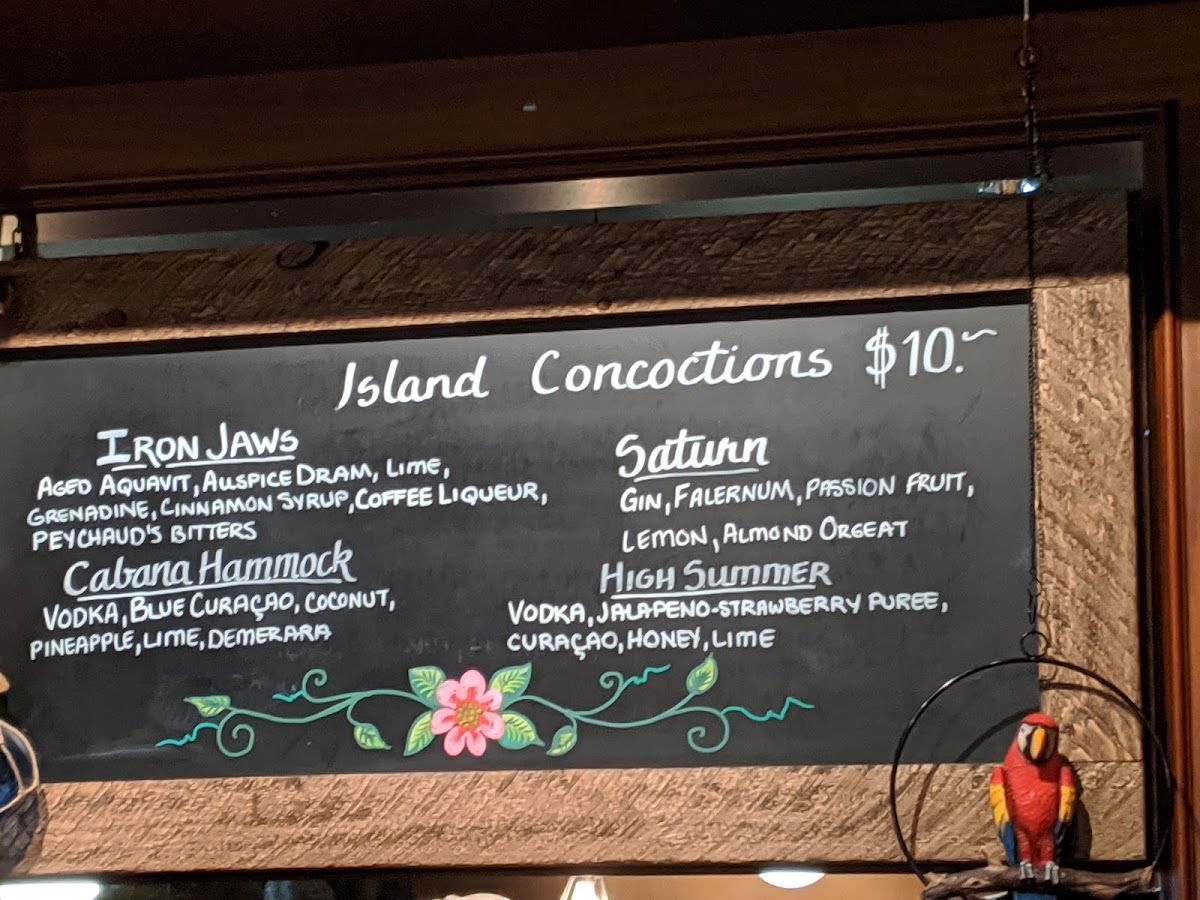 Island Concoctions $10.~
IRON JAWS
AGED AQUAVIT, AUSPICE DRAM, LIME,
GRENADINE, CINNAMON SYRUP, COFFEE LIQUEUR,
PEYCHAUD'S BITTERS
Cabana Hammock
VODKA, BLUE CURAÇAO, COCONUT,
PINEAPPLE, LIME, DEMERARA
Saturn
GIN, FALERNUM, PASSION FRUIT,
LEMON, ALMOND ORGEAT
HIGH SUMMER
VODKA, JALAPENO-STRAWBERRY PUREE,
CURAÇAO, HONEY, LIME